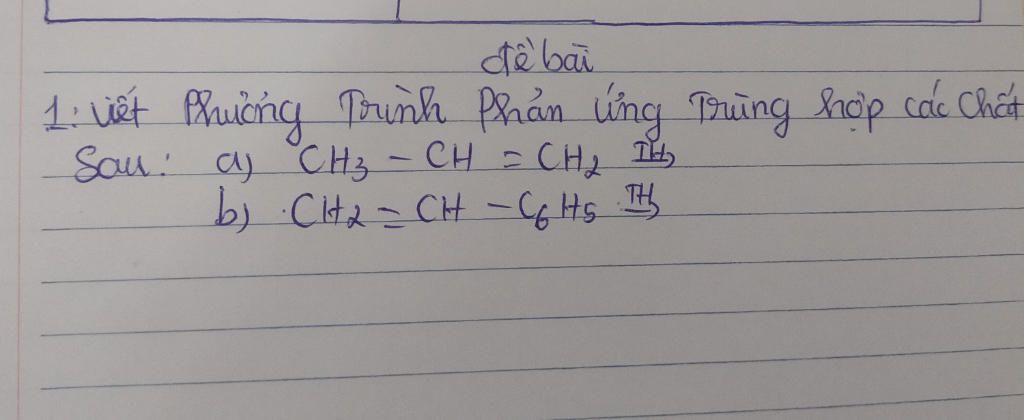 đề bài
1: viết Phương Trình Phản ứng Trùng hợp các Chất
Sau: a) CH3 - CH = CH2 TH→
b) CH2 = CH - C6H5 TH→